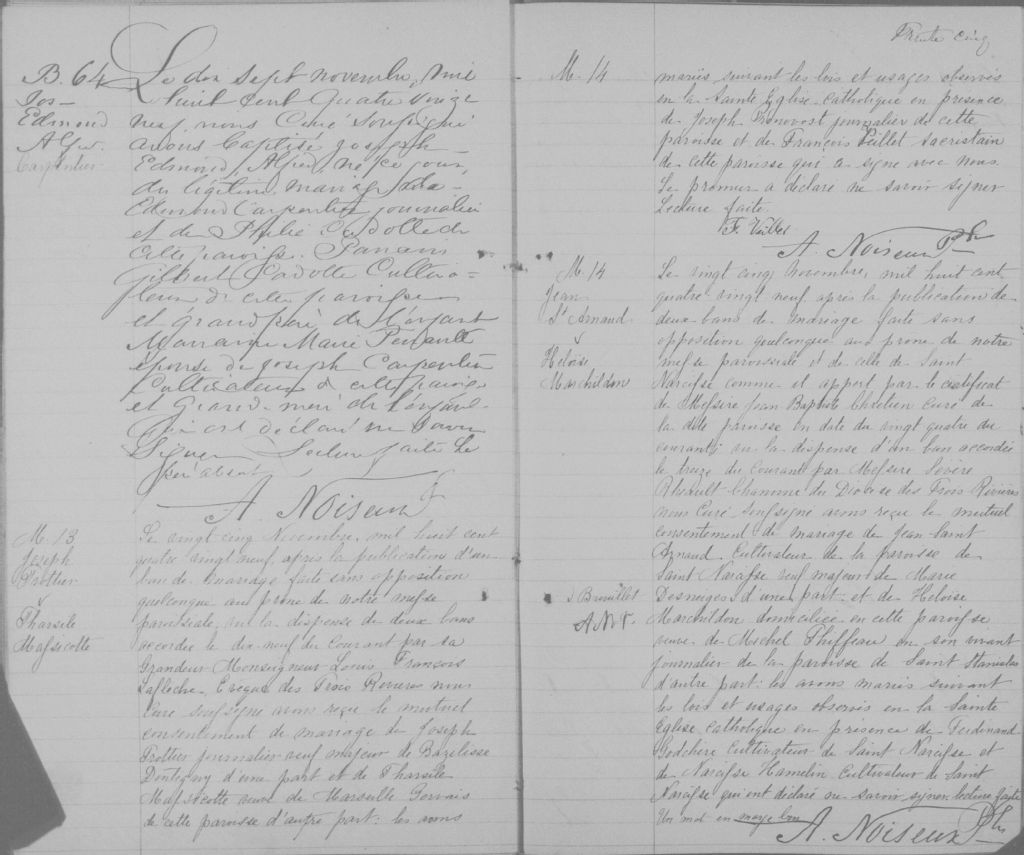 B. 64
Jos-
Edmond
Alfred
Carpentier
Le dix sept novembre, mil
huit cent quatre vingt
neuf, nous Curé soussigné
avons baptisé Joseph-
Edmond, Alfred, né ce jour,
du légitime mariage de
Edmond Carpentier journalier
et de Phebé Cadotte de
cette paroisse. Parrain
Gilbert Cadotte Cultiva-
teur de cette paroisse
et Grand père de l'enfant
Marraine Marie
épouse de Joseph Carpentier
Cultivateur de cette paroisse
et Grand-mère de l'enfant
Qui ont déclaré ne savoir
Signer Lecture faite Le
père absent
A. Noiseux Ptr
M. 13
Joseph
Trottier
&
Tharsile
Massicotte
Le vingt cinq Novembre, mil huit cent
quatre vingt neuf, après la publication d'un
ban de mariage faite sans opposition
quelconque au prone de notre messe
paroissiale, vu la dispense de deux bans
accordée le dix-neuf du Courant par sa
Grandeur Monseigneur Louis François
Laflèche, Evêque des Trois Rivieres nous
Curé soussigné avons reçu le mutuel
consentement de mariage de Joseph
Trottier journalier veuf majeur de Bazelisse
Dontigny d'une part et de Tharsile
Massicotte veuve de Marseille Gervais
de cette paroisse d'autre part: les avons
Trente cinq
M. 14
mariés suivant les lois et usages observés
en la Sainte Eglise Catholique en presence
de Joseph Pronovost journalier de cette
paroisse et de François Veillet sacristain
de cette paroisse qui a signé avec nous.
Le premier a déclaré ne savoir signer
Lecture faite.
F. Veillet
A. Noiseux Ptr
M. 14
Jean
St Arnaud
&
Heloise
Marchildon
Le vingt cinq Novembre, mil huit cent
quatre vingt neuf après la publication de
deux bans de mariage faite sans
opposition quelconque au prone de notre
messe paroissiale et de celle de Saint
Narcisse comme il appert par le certificat
de Messire Jean Baptiste Chrétien Curé de
la dite paroisse en date du vingt quatre du
courant; vu la dispense d'un ban accordée
le treize du Courant par Messire Sévère
Rheault Chanoine du Diocese des Trois Rivières
nous Curé soussigné avons reçu le mutuel
consentement de mariage de Jean Saint
Arnaud Cultivateur de la paroisse de
Saint Narcisse veuf majeur de Marie
Desruges d'une part: et de Heloise
Marchildon domiciliée en cette paroisse
veuve de Michel Phiffeau en son vivant
journalier de la paroisse de Saint Stanislas
d'autre part: les avons mariés suivant
les lois et usages observés en la Sainte
Eglise Catholique en présence de Ferdinand
Godchère Cultivateur de Saint Narcisse et
de Narcisse Hamelin Cultivateur de Saint
Narcisse qui ont déclaré ne savoir signer. lecture faite
Un mot en marge bon
A. Noiseux Ptr
Brouillet
A. N. P.